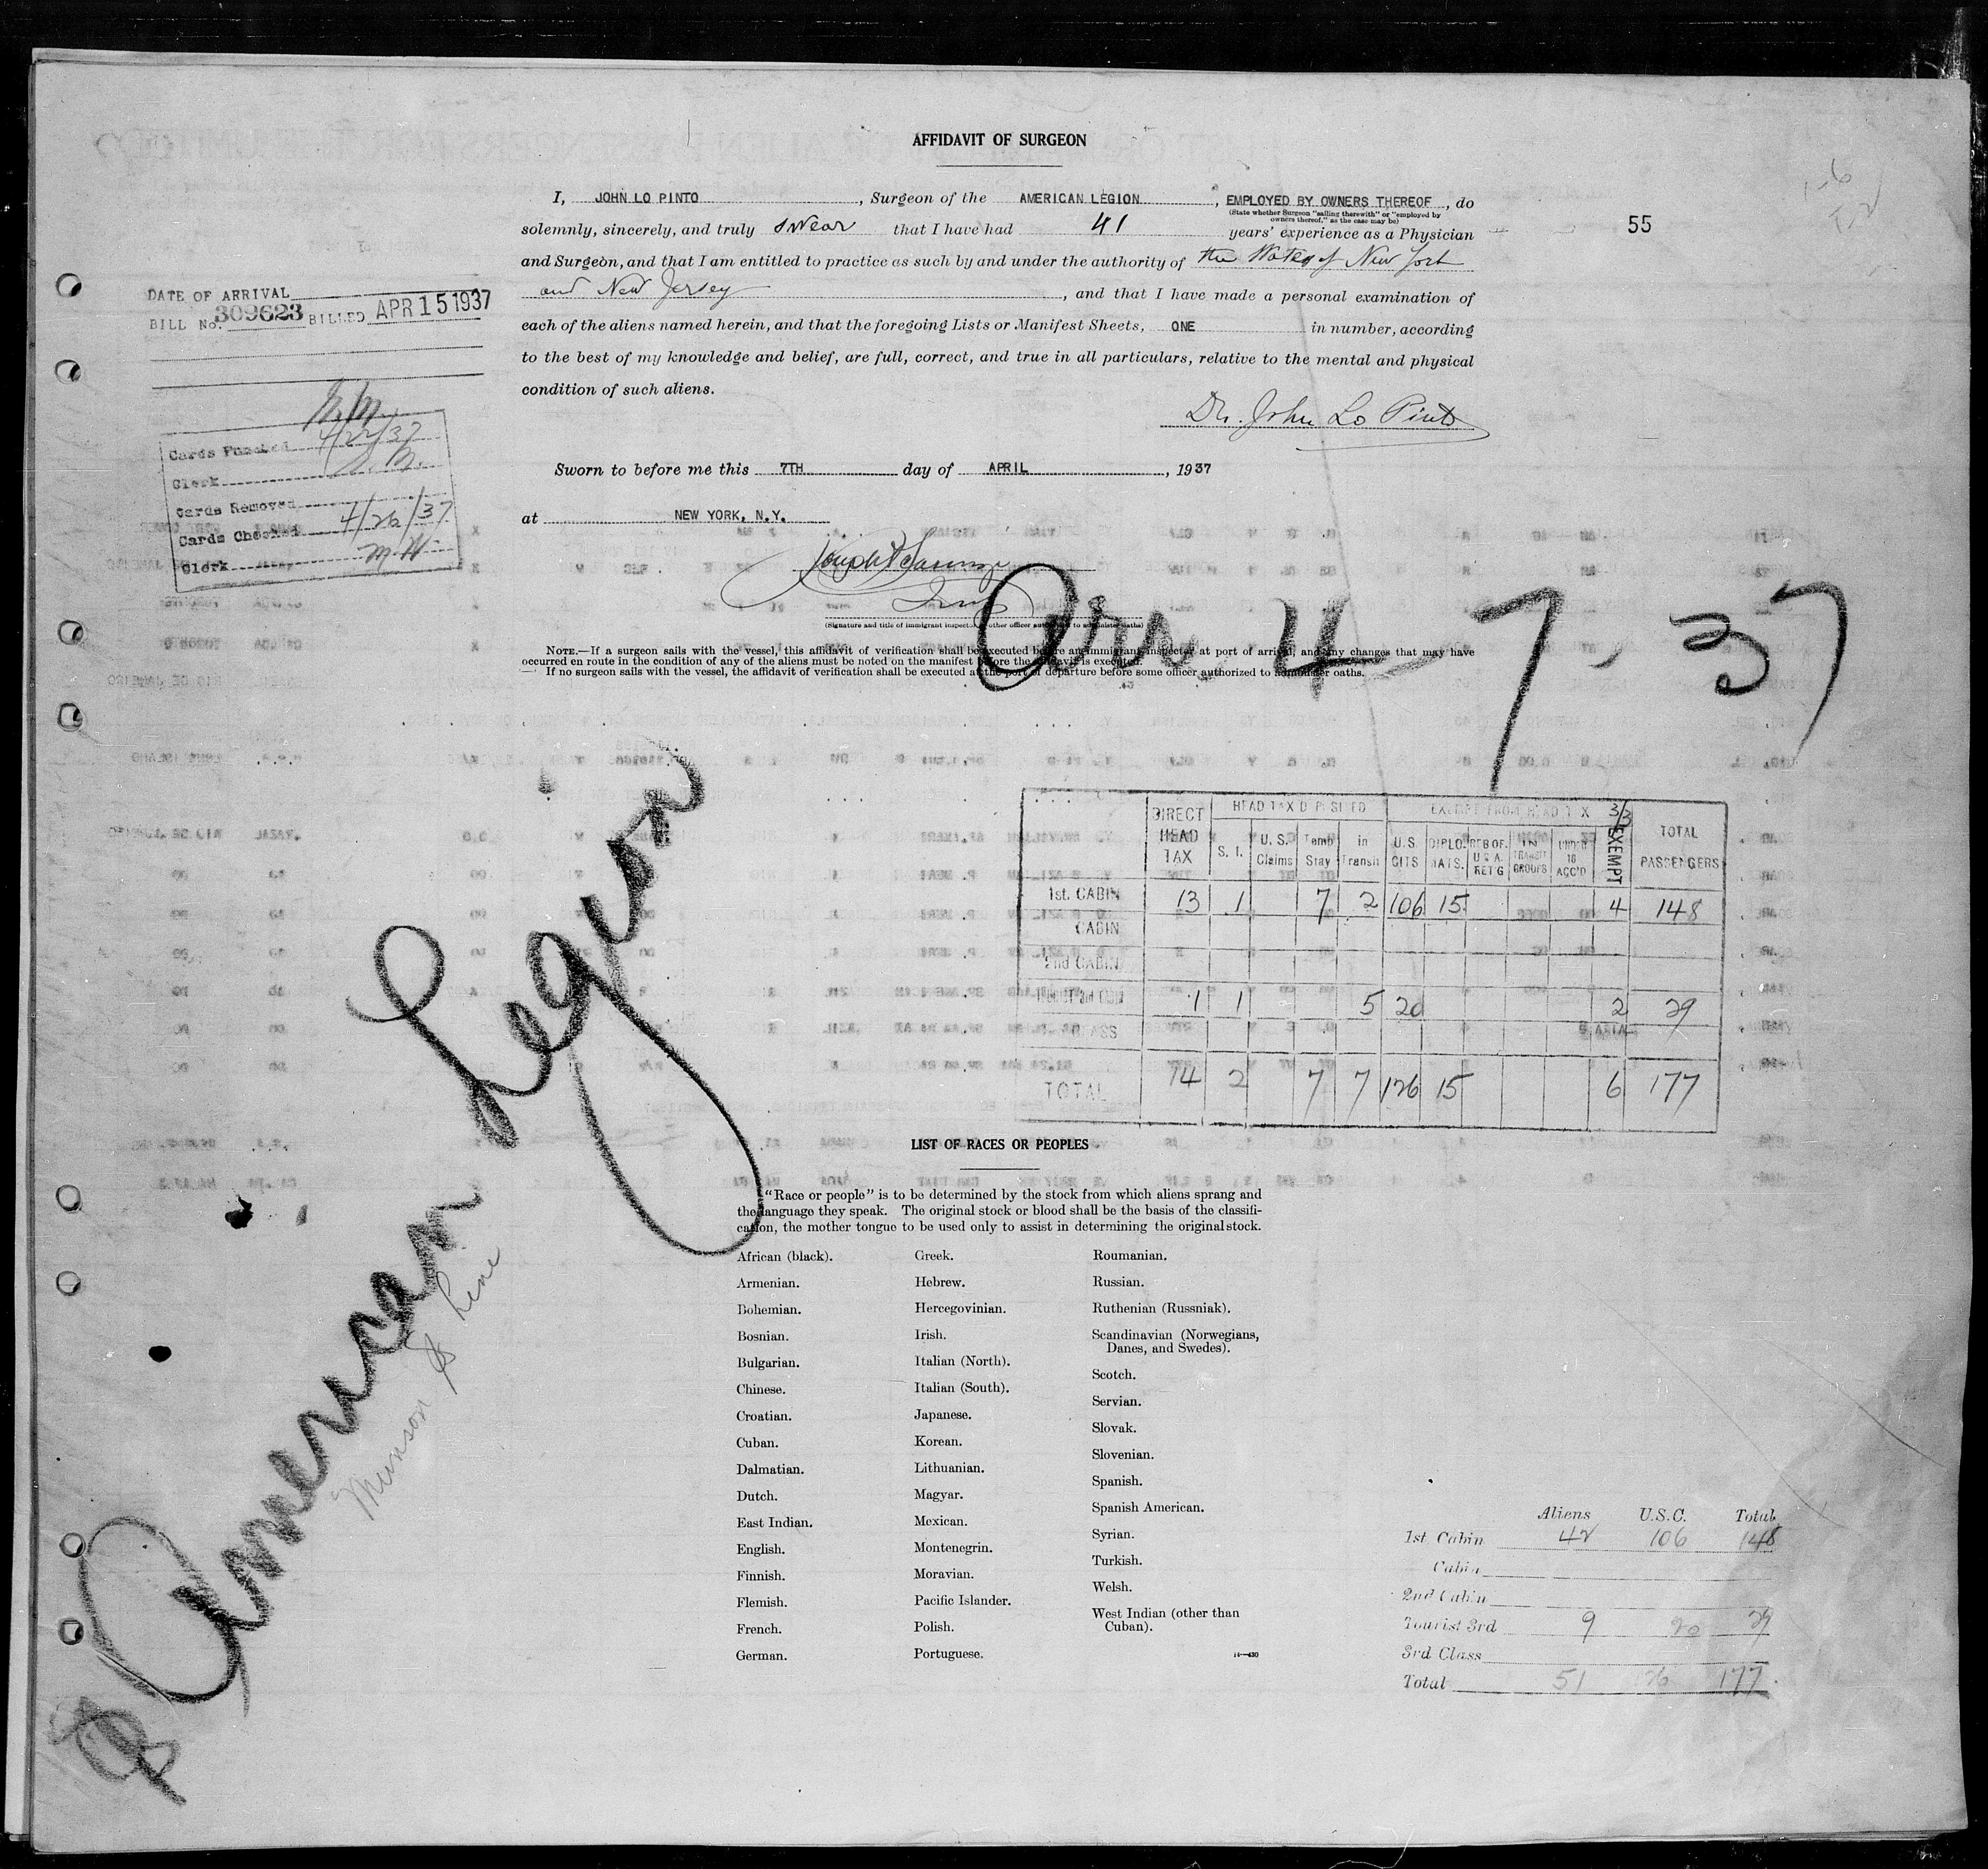 AFFIDAVIT OF SURGEON
I, JOHN LO PINTO, Surgeon of the AMERICAN LEGION, EMPLOYED BY OWNERS THEREOF, do
(State whether Surgeon "sailing therewith" or "employed by
owners thereof," as the case may be)
solemnly, sincerely, and truly swear that I have had 41 years' experience as a Physician
55
and Surgeon, and that I am entitled to practice as such by and under the authority of the States of New York
and New Jersey, and that I have made a personal examination of
each of the aliens named herein, and that the foregoing Lists or Manifest Sheets, ONE in number, according
to the best of my knowledge and belief, are full, correct, and true in all particulars, relative to the mental and physical
condition of such aliens.
Dr. John Lo Pinto
Sworn to before me this 7TH day of APRIL, 1937
at NEW YORK, N.Y.
(Signature and title of immigrant inspector or other officer authorized to administer oaths)
DATE OF ARRIVAL
BILL No. 309623 BILLED APR 15 1937
Cards Punched 4/22/37
Clerk
Cards Removed
Cards Checked 4/26/37
Clerk M H
Arr. 4-7-37
NOTE.—If a surgeon sails with the vessel, this affidavit of verification shall be executed before an immigrant inspector at port of arrival, and any changes that may have
occurred en route in the condition of any of the aliens must be noted on the manifest before the affidavit is executed.
If no surgeon sails with the vessel, the affidavit of verification shall be executed at the port of departure before some officer authorized to administer oaths.
SS American Legion
Munson SS Line
DIRECT HEAD TAX HEAD TAX DEPOSITED EXEMPT FROM HEAD TAX 3/3 EXEMPT TOTAL PASSENGERS
S. I. U. S. Claims Temp Stay in Transit U.S. CITS DIPLOMATS. REB OF. U S A. RET'G IN TRANSIT GROUPS UNDER 16 ACC'D
1st. CABIN 13 1 7 2 106 15 4 148
CABIN
2nd CABIN
1 1 5 20 2 29
CLASS
TOTAL 14 2 7 7 126 15 6 177
LIST OF RACES OR PEOPLES
"Race or people" is to be determined by the stock from which aliens sprang and
the language they speak. The original stock or blood shall be the basis of the classifi-
cation, the mother tongue to be used only to assist in determining the original stock.
African (black).
Armenian.
Bohemian.
Bosnian.
Bulgarian.
Chinese.
Croatian.
Cuban.
Dalmatian.
Dutch.
East Indian.
English.
Finnish.
Flemish.
French.
German.
Greek.
Hebrew.
Hercegovinian.
Irish.
Italian (North).
Italian (South).
Japanese.
Korean.
Lithuanian.
Magyar.
Mexican.
Montenegrin.
Moravian.
Pacific Islander.
Polish.
Portuguese.
Roumanian.
Russian.
Ruthenian (Russniak).
Scandinavian (Norwegians,
Danes, and Swedes).
Scotch.
Servian.
Slovak.
Slovenian.
Spanish.
Spanish American.
Syrian.
Turkish.
Welsh.
West Indian (other than
Cuban).
14—430
Aliens U.S.C. Total
1st Cabin 42 106 148
Cabin
2nd Cabin
Tourist 3rd 9 20 29
3rd Class
Total 51 126 177